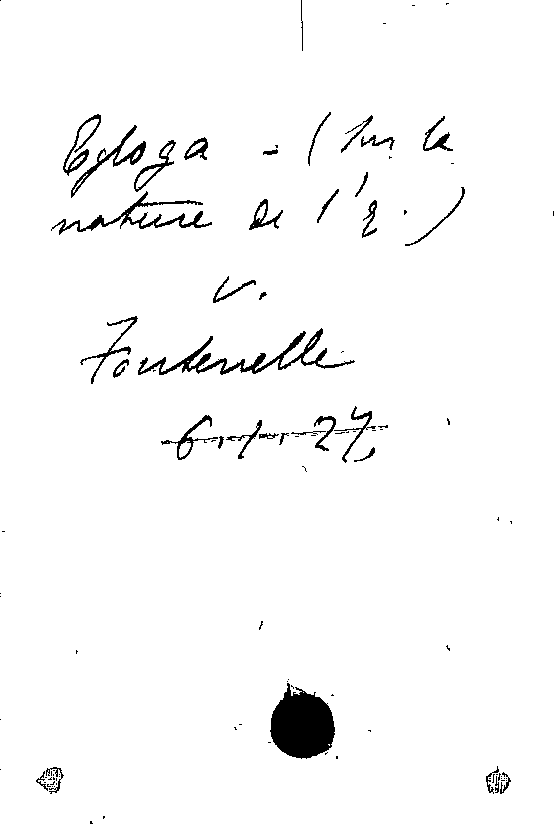 Egloga - (Sur la
nature de l'E.)
v.
Fontenelle
6.1.27